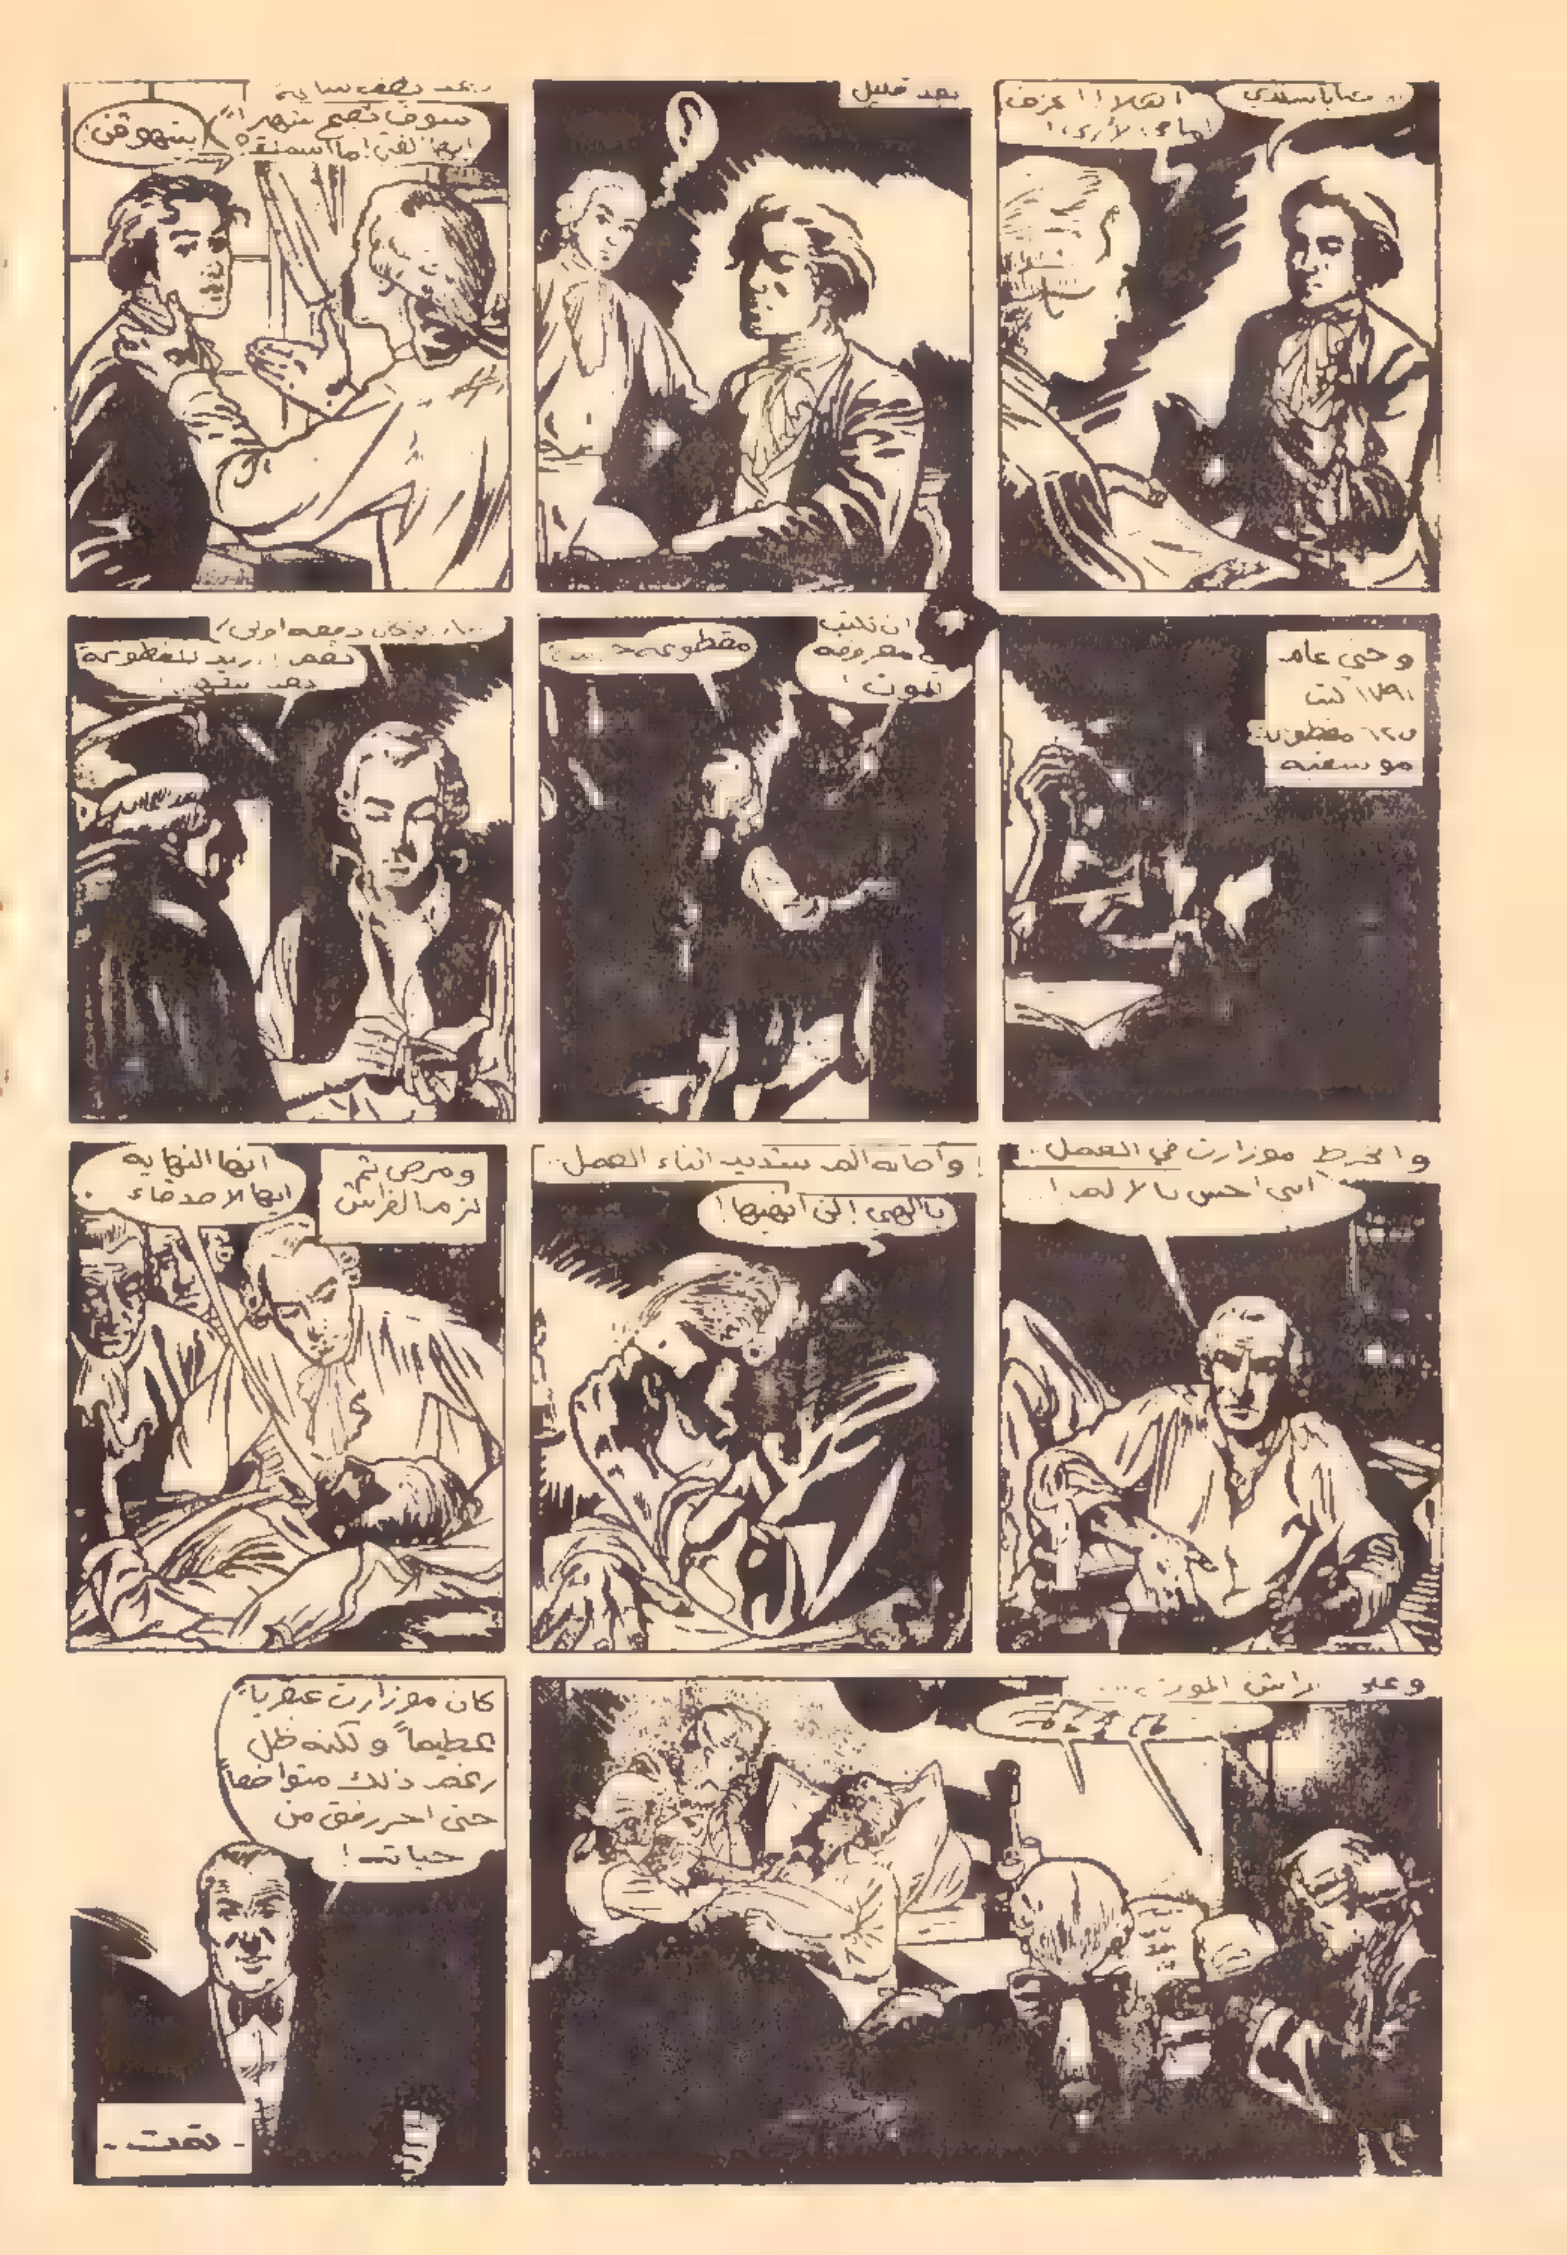 أهلا! اعزف
أمامي لأرى!
بعد قليل
بعد نصف ساعة
سوف تصبح شهيراً
أيها الفتى! ما اسمك؟
بيتهوفن!
وفي عام
١٧٩١ كتب
٦٢٥ مقطوعة
موسيقية
أن تكتب
معزوفة
للموت!
مقطوعة
دفعه أولى!
نعم! أريد المقطوعة
بعد
وانخرط موزارت في العمل..
إني أحس بالألم!
وأصابه ألم شديد أثناء العمل..
يا إلهي! لن أنهيها!
ومرض ثم
لزم الفراش
إنها النهاية
أيها الأصدقاء
وعلى فراش الموت...
كان موزارت عبقرياً
عظيماً ولكنه ظل
رغم ذلك متواضعاً
حتى آخر رمق من
حياته!
- تمت -